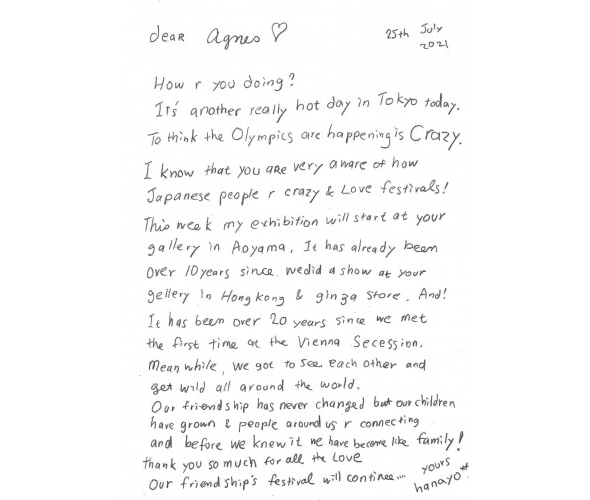 dear Agnes ♡
25th July
2021
How r you doing?
It's another really hot day in Tokyo today.
To think the Olympics are happening is Crazy.
I know that you are very aware of how
Japanese people r crazy & Love festivals!
This week my exhibition will start at your
gallery in Aoyama. It has already been
over 10 years since. we did a show at your
gellery in Hong kong & ginza store. And!
It has been over 20 years since we met
the first time at the Vienna Secession.
Mean while, we got to see each other and
get wild all around the world.
Our friendship has never changed but our children
have grown & people around us r connecting
and before we knew it we have become like family!
thank you so much for all the Love
Our friendship's festival will continue....
yours
hanayo*